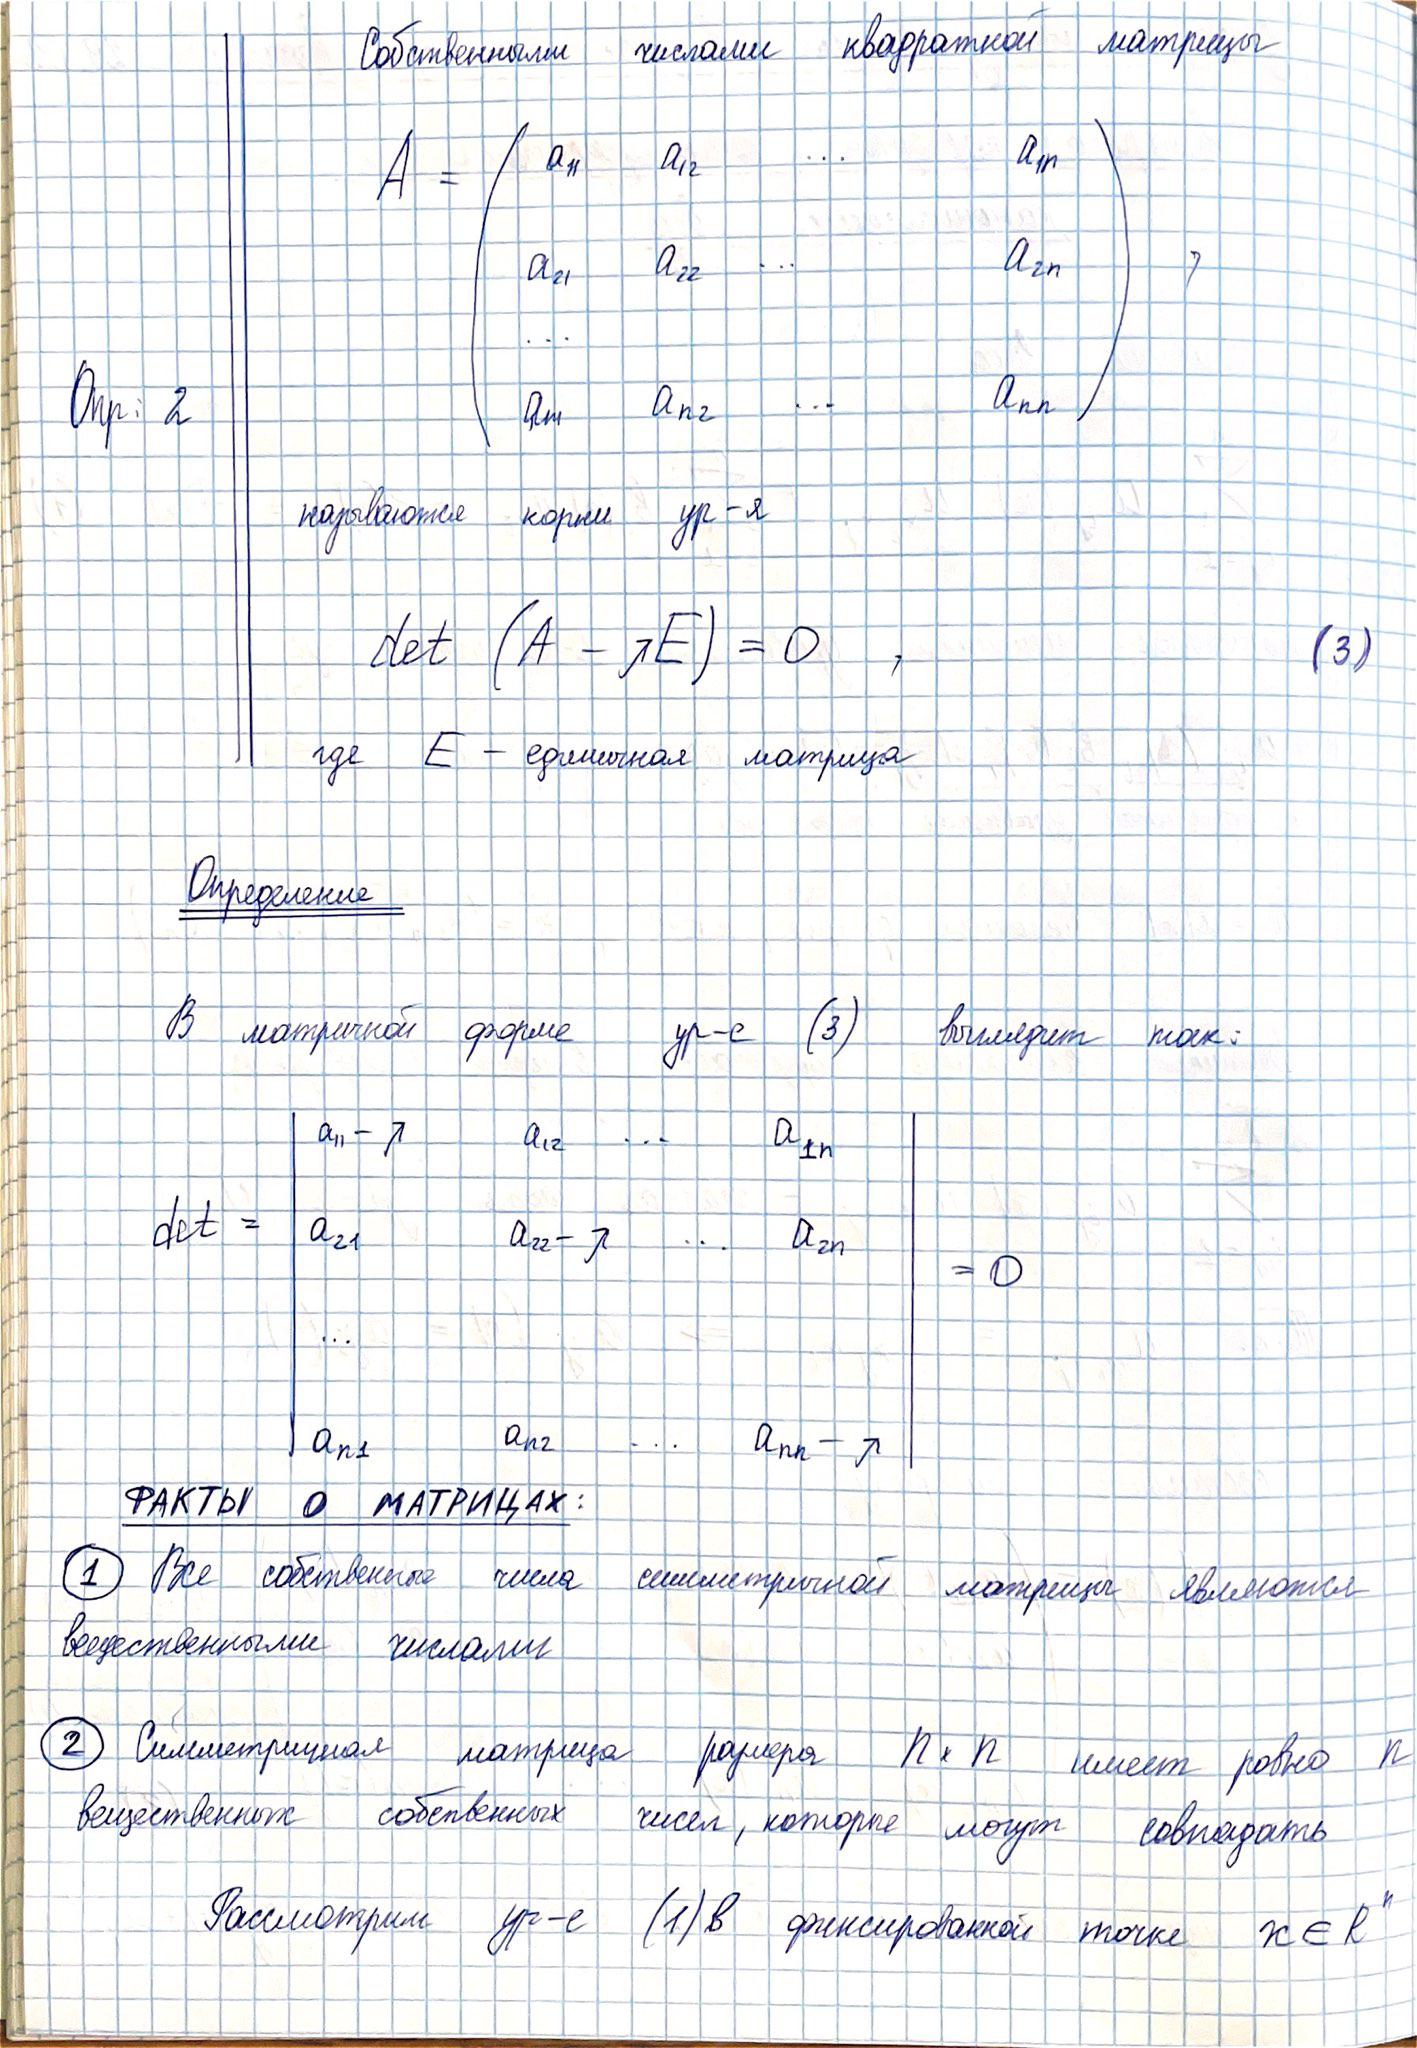 Собственными числами квадратной матрицы
A = ( a₁₁ a₁₂ ... a₁ₙ
a₂₁ a₂₂ ... a₂ₙ ) ,
...
Опр: 2
aₙ₁ aₙ₂ ... aₙₙ
называются корни ур-я
det (A - λE) = 0 , (3)
где E - единичная матрица
Определение
В матричной форме ур-е (3) выглядит так:
a₁₁ - λ a₁₂ ... a₁ₙ
det = | a₂₁ a₂₂ - λ ... a₂ₙ | = 0
...
aₙ₁ aₙ₂ ... aₙₙ - λ
ФАКТЫ О МАТРИЦАХ:
1 Все собственные числа симметричной матрицы являются
вещественными числами
2 Симметричная матрица размера n × n имеет ровно n
вещественных собственных чисел, которые могут совпадать
Рассмотрим ур-е (1) в фиксированной точке x ∈ Rⁿ